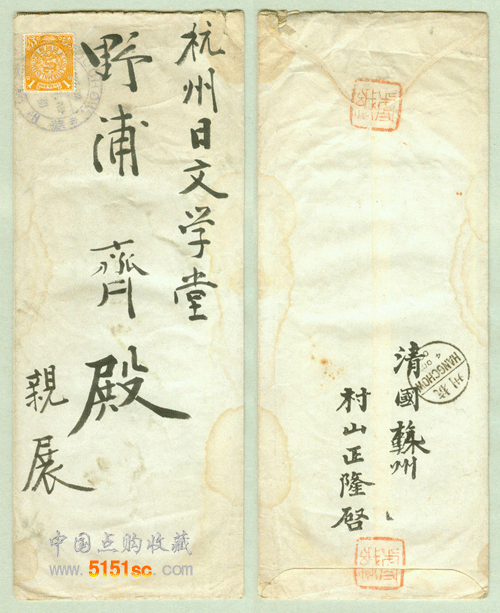 杭州日文学堂
野浦齊殿
親展
清國蘇州
村山正隆啓
HANGCHOW
州杭
1
中国点购收藏
www.5151sc.com